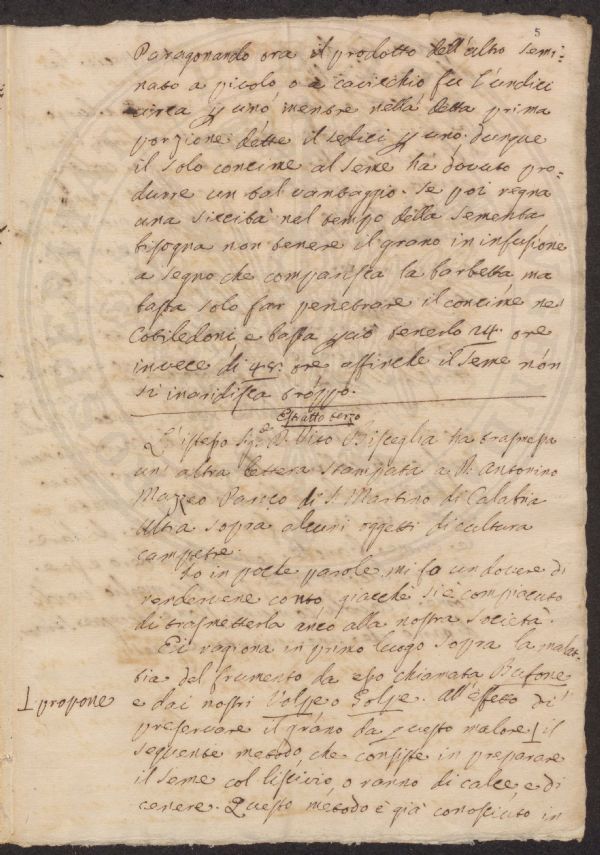 5
Paragonando ora il prodotto dell'altro semi:
nato a picolo o a cavicchio fu l'undici
circa p uno mentre nella detta prima
porzione dette il sedici p uno: dunque
il solo concime al seme ha dovuto pro:
durre un tal vantaggio. Se poi regna
una siccità nel tempo della sementa
bisogna non tenere il grano in infusione
a segno che comparisca la barbetta ma
basta solo far penetrare il concime ne
Cotiledoni, e basta pciò tenerlo 24. ore
invece di 48: ore affinche il seme non
si inaridisca troppo.
Estratto terzo
L'istesso Sig.e D. Vito Bisceglia ha trasmessa
un altra lettera stampata a D. Antonino
Mazzeo Parico di S. Martino di Calabria
Ultra sopra alcuni oggetti di cultura
campestre.
Io in poche parole mi fo un dovere di
rendervene conto giacche si è compiaciuto
di trasmetterla anco alla nostra Società.
Ei ragiona in primo luogo sopra la malat-
tia del frumento da esso chiamata Bufone
e dai nostri Volpe o Golpe. All'effetto di
preservare il grano da questo malore Ʇ il
Ʇ propone
seguente metodo, che consiste in preparare
il seme col liscivio, o ranno di calce, e di
cenere. Questo metodo è già conosciuto in